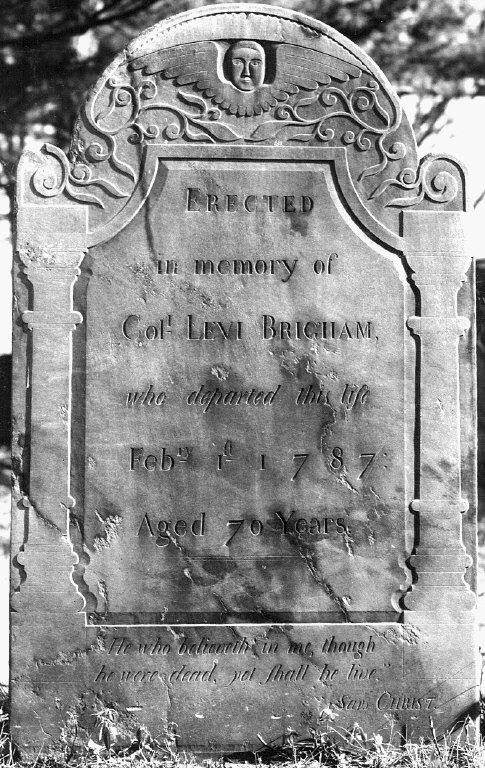 ERECTED
in memory of
Col.l LEVI BRIGHAM,
who departed this life
Feb.ry 1.st 1787:
Aged 70 Years.
"He who believeth in me, though
he were dead, yet ſhall he live."
Says CHRIST.